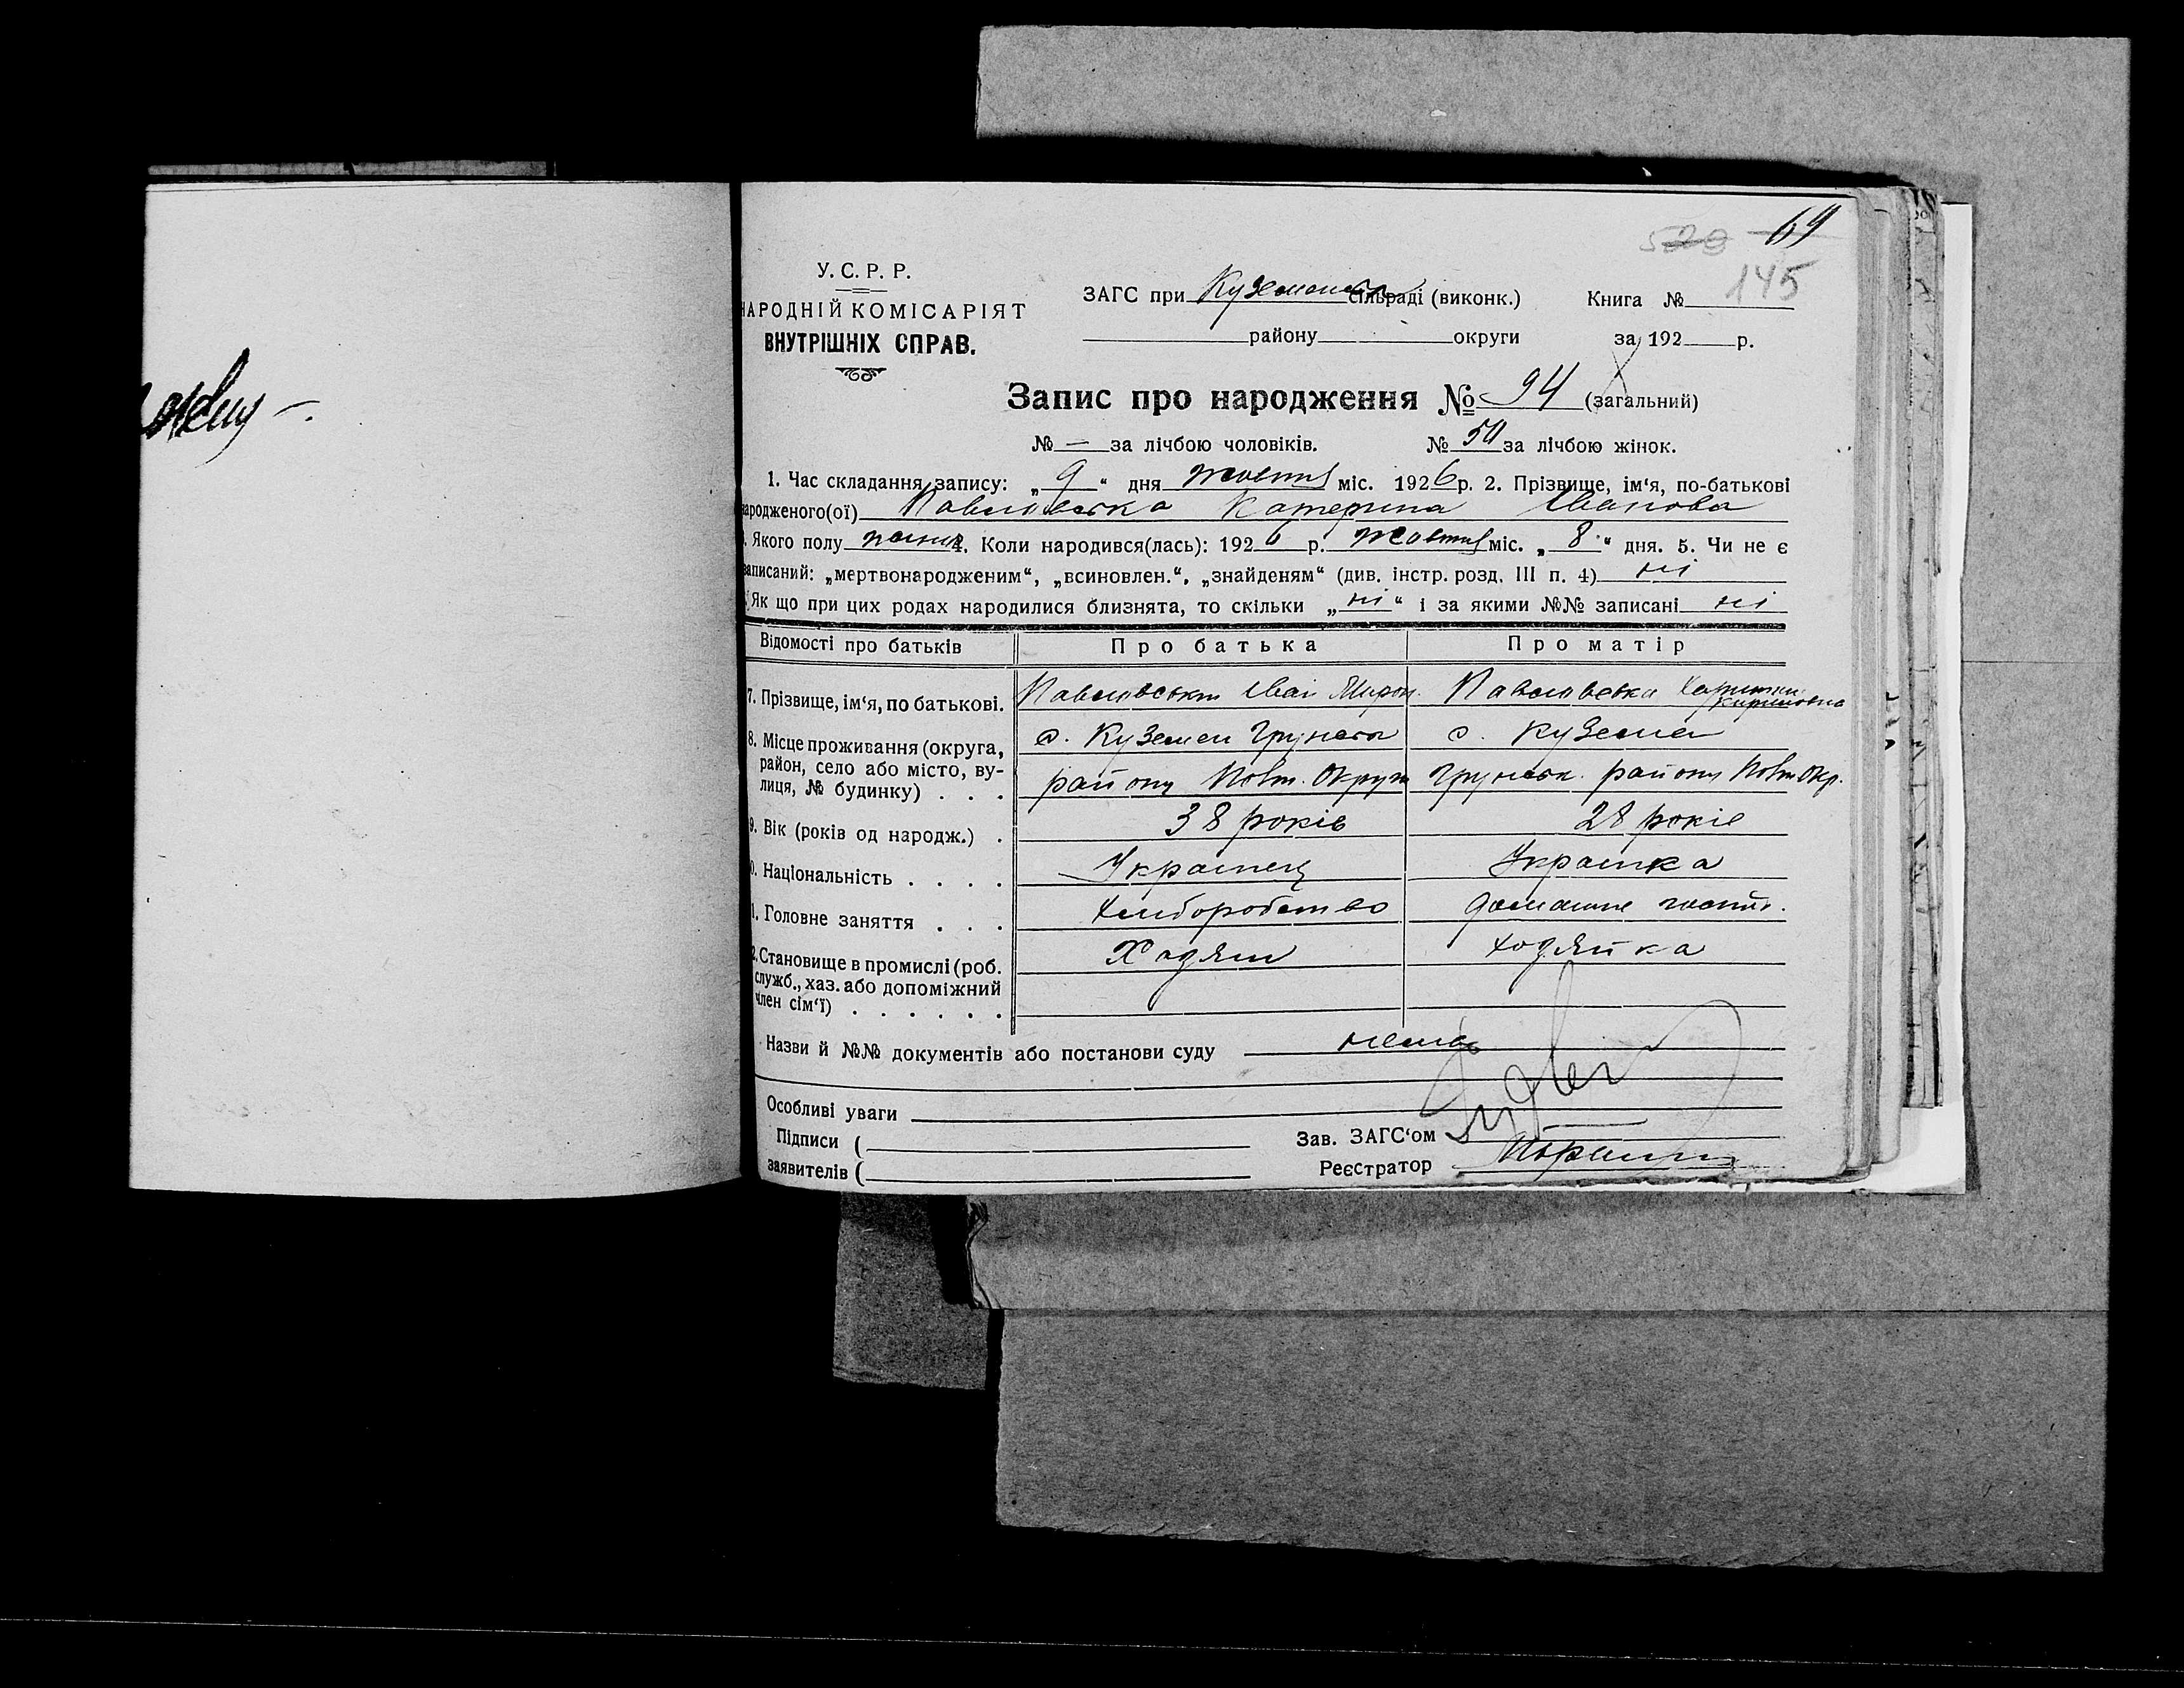 529 69
145
У. С. Р. Р.
НАРОДНІЙ КОМІСАРІЯТ
ВНУТРІШНІХ СПРАВ.
ЗАГС при Куземенск сільраді (виконк.) Книга №
району округи за 192 р.
Запис про народження № 94 (загальний)
№ — за лічбою чоловіків. № 50 за лічбою жінок.
1. Час складання запису: „ 9 “ дня жовтня міс. 1926 р. 2. Прізвище, ім‘я, по-батькові
народженого(ої) Павловська Катерина Іванова
Якого полу 4. Коли народився(лась): 1926 р. жовтня міс. „ 8 “ дня. 5. Чи не є
записаний: „мертвонародженим“, „всиновлен.“, „знайденям“ (див. інстр. розд. III п. 4) ні
Як що при цих родах народилися близнята, то скільки „ ні “ і за якими №№ записані ні
Відомості про батьків Про батька Про матір
7. Прізвище, ім‘я, по батькові. Павловський Іван Мирон. Павловська Кириловна
8. Місце проживання (округа, район, село або місто, вулиця, № будинку) . . . с. Куземен Грунськ с. Куземен
району Полт. Округи Грунськ. району Полт Окр.
9. Вік (років од народж.) . 38 років 28 років
10. Національність . . . . Українець Українка
11. Головне заняття . . . Хліборобство домашнє госп.
12. Становище в промислі (роб. служб., хаз. або допоміжний член сім‘ї) . . . . . . Ходяїн ходяйка
Назви й №№ документів або постанови суду нема
Особливі уваги
Підписи ( Зав. ЗАГС‘ом
заявителів ( Реєстратор